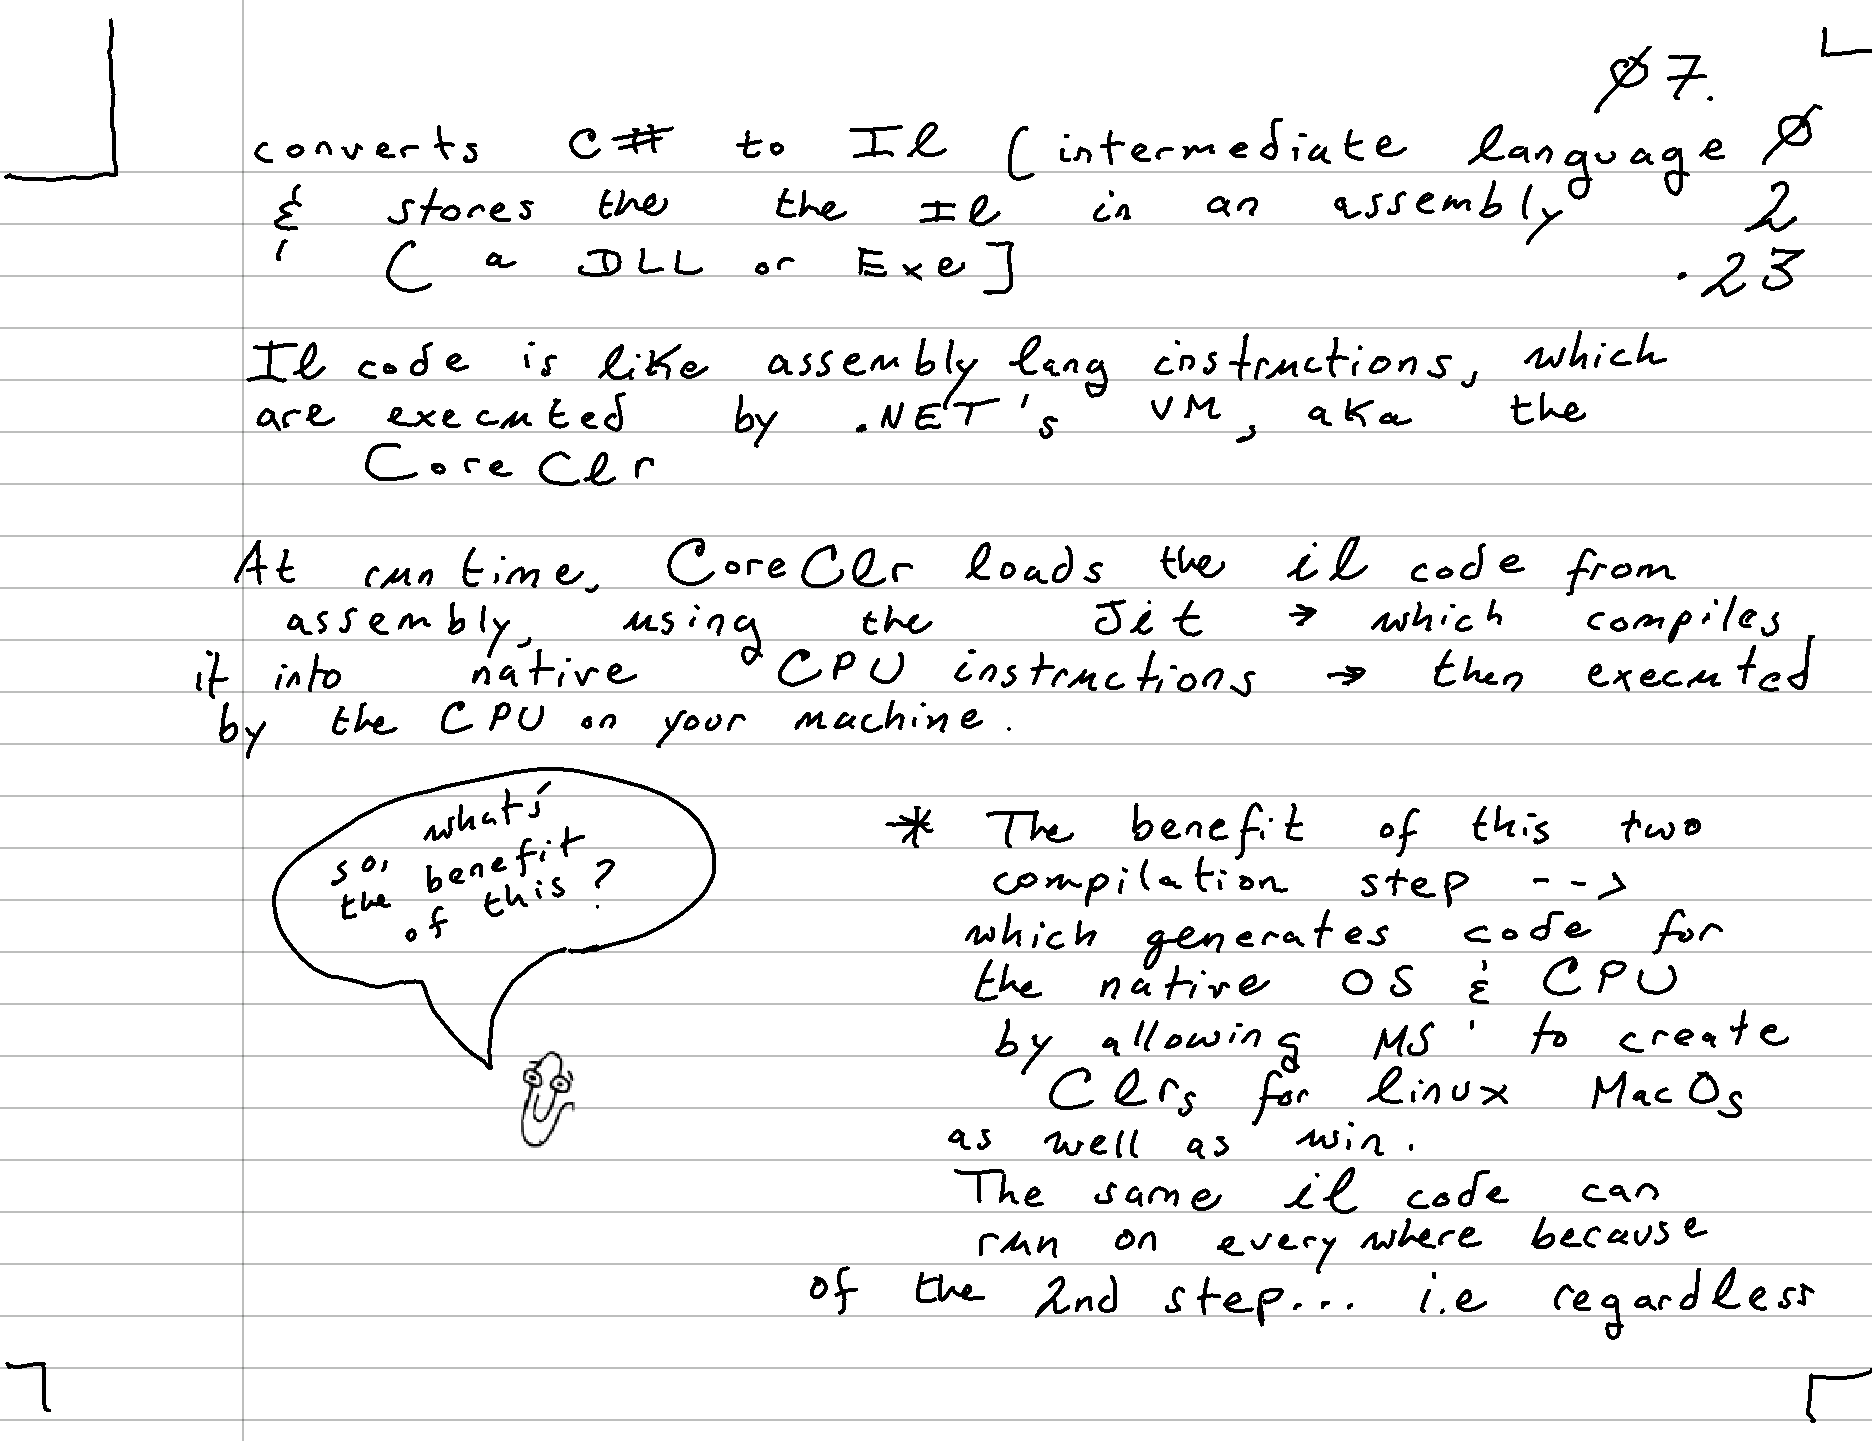 Ø7.
converts C# to Il (intermediate language Ø
& stores the the Il in an assembly 2
( a DLL or Exe] .23
Il code is like assembly lang instructions, which
are executed by .NET's VM, aKa the
CoreClr
At run time, CoreClr loads the il code from
assembly, using the Jit → which compiles
it into native CPU instructions → then executed
by the CPU on your machine.
so, what's
the benefit
of this?
* The benefit of this two
compilation step -->
which generates code for
the native OS & CPU
by allowing MS' to create
Clrs for linux MacOs
as well as win.
The same il code can
run on every where because
of the 2nd step... i.e regardless